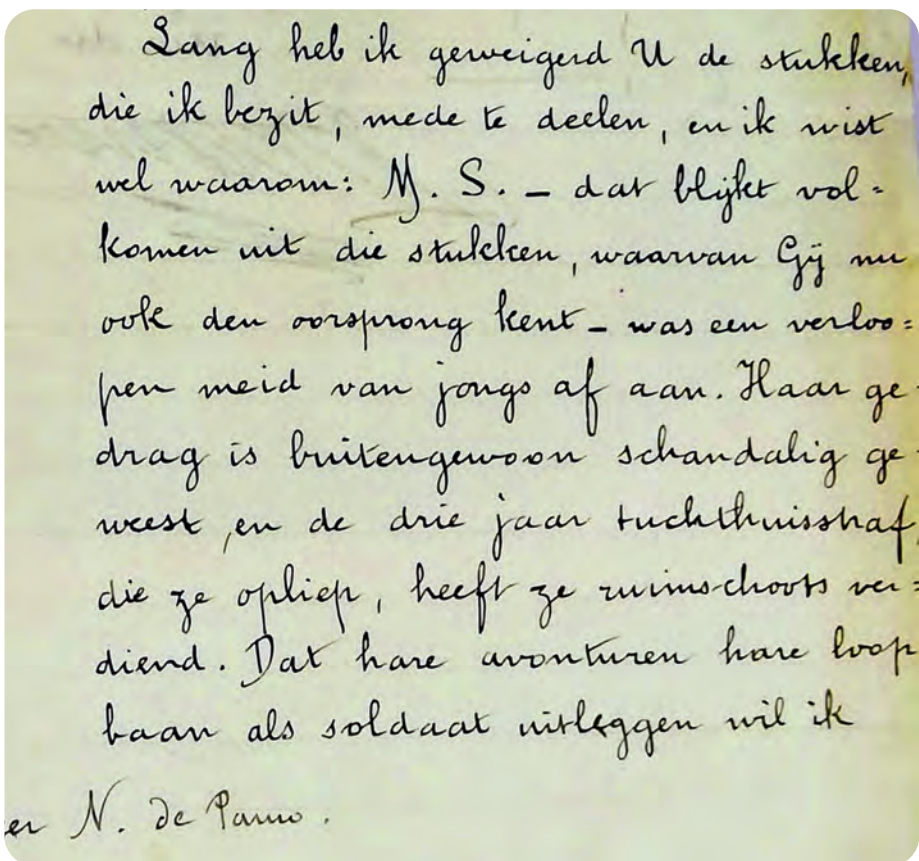 Lang heb ik geweigerd U de stukken,
die ik bezit, mede te deelen, en ik wist
wel waarom: M. S. – dat blijkt vol=
komen uit die stukken, waarvan Gij nu
ook den oorsprong kent – was een verloo=
pen meid van jongs af aan. Haar ge-
drag is buitengewoon schandalig ge-
weest, en de drie jaar tuchthuisstraf,
die ze opliep, heeft ze ruimschoots ver=
diend. Dat hare avonturen hare loop
baan als soldaat uitleggen wil ik
er N. de Pauw.